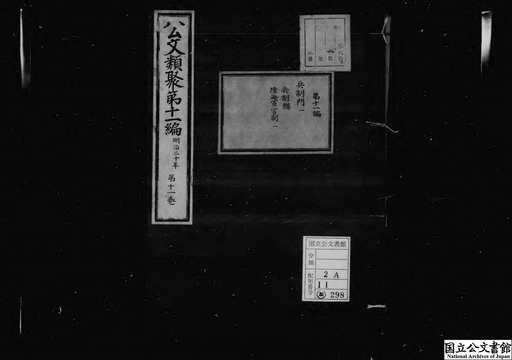 公文類聚第十一編 明治二十年 第十一巻
第十一編
兵制門一
兵制総
陸海軍官制一
国立公文書館
分類
配架番号
2 A
11
298
国立公文書館
National Archives of Japan